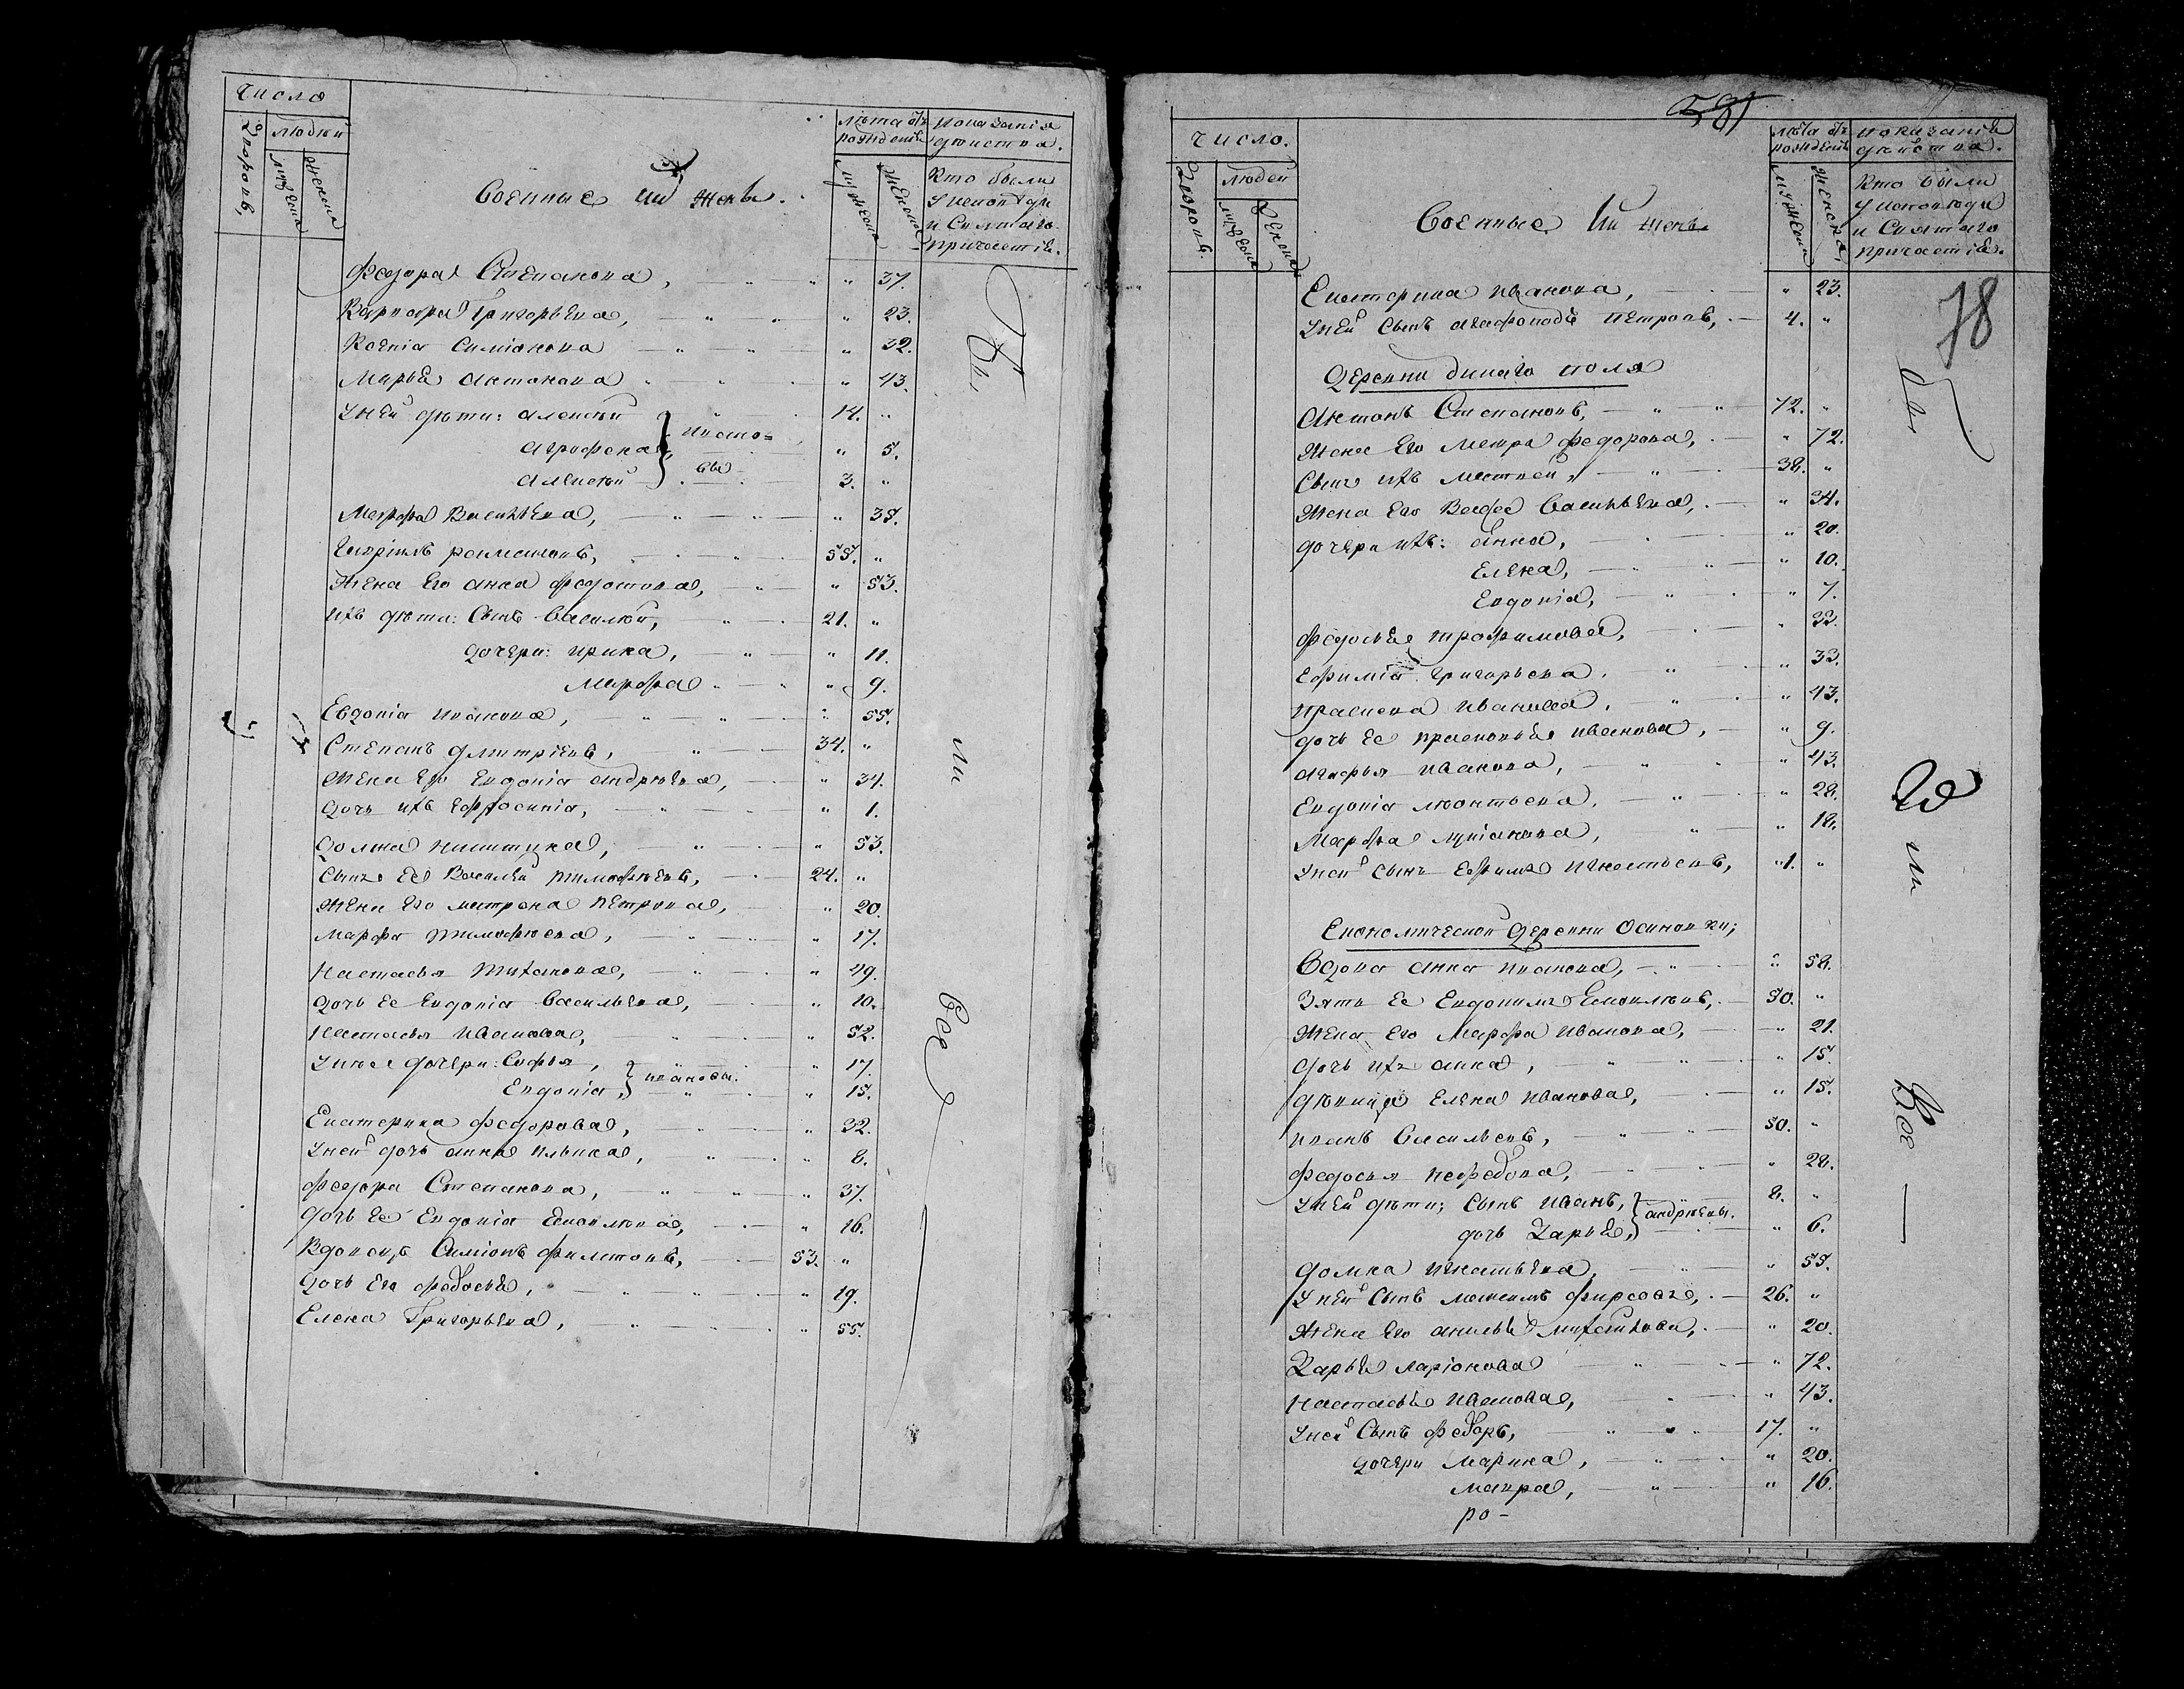 Число
Дворовъ,
людей
мужеска
женска
Военные ихъ жены.
лѣта отъ рожденія
мужеска
женска
показаніе действа.
Кто были
у исповѣди
и Святаго
причастія.
Федора Степанова, " 37.
Варвара Григорьева, " 23.
Ксенія Симіонова " 32.
Марья Антонова " 43.
У ней дѣти: Алексѣй 14. "
Агрифена, } Ивано= " 5.
Алексѣй вы 3. "
Марфа Васильева, " 38.
Гавріилъ 55. "
Жена Его Анна Федотова, " 53.
Ихъ дѣти: Сынъ Василій, 21. "
дочери: Ирина, " 11.
Марфа " 9.
Евдокія Иванова, " 55.
Степанъ Дмитріевъ, 34. "
Жена Его Евдокія Андрѣева, " 34.
Дочь ихъ Ефросинія, " 1.
Домна Никитина, " 53.
Сынъ Ее Василей Тимофѣевъ, 24. "
Жена Его Матрона Петрова, " 20.
Марфа Тимофѣева, " 17.
Настасья Тиханова, " 49.
Дочь Ее Евдокія Васильева, " 10.
Настасья Иванова, " 52.
У нее дочери: Софья, " 17.
Евдокія, } Ивановы. " 15.
Екатерина Федорова, " 32.
У ней дочь Анна Ильина, " 8.
Федора Степанова, " 37.
Дочь Ее Евдокія " 16.
Вдовецъ Симіонъ 53. "
Дочь Его Федосья, " 19.
Елена Григорьева, " 55.
Бы
ли
Все
581
Число.
Дворовъ.
людей
мужеска
женска
Военные Ихъ жены
лѣта отъ рожденія
мужеска
женска
показаніе действа.
Кто были
у исповѣди
и Святаго
причастія.
78
Екатерина Иванова, " 23.
У ней Сынъ Агафоподъ Петровъ, 4. "
Деревни дикаго поля
Антонъ Степановъ, 72. "
Жена Его Мавра Федорова, " 72.
Сынъ ихъ Матвей, 38. "
Жена Его Васса Васильева, " 34.
дочери ихъ: Анна, " 20.
Елена, " 10.
Евдокія, " 7.
Федосья Трофимова, " 32.
Ефимія Григорьева, " 33.
Прасковья Иванова, " 43.
дочь Ее Прасковья Иванова, " 9.
Агафья Иванова, " 43.
Евдокія Леонтьева, " 28.
Марфа Лукіанова, " 18.
У ней Сынъ Ефимъ Игнатьевъ, 1. "
Економической деревни Осиновки;
Вдова Анна Иванова, " 58.
Зять Ее Евдокимъ 50. "
Жена Его Марфа Иванова, " 21.
дочь ихъ Анна, " 15.
дѣвица Елена Иванова, " 15.
Иванъ Васильевъ, 50. "
Федосья Нефедова, " 28.
У ней дѣти; Сынъ Иванъ, } Андрѣевы. 8. "
дочь Дарья, " 6.
Домна Игнатьева, " 55.
У ней Сынъ Максимъ Фирсовъ, 26. "
Жена Его Акилина Михайлова, " 20.
Дарья Ларіонова " 72.
Настасья Иванова, " 43.
У ней Сынъ Федоръ, 17. "
дочери Марина, " 20.
Мавра, " 16.
ро-
Бы
ли
Все